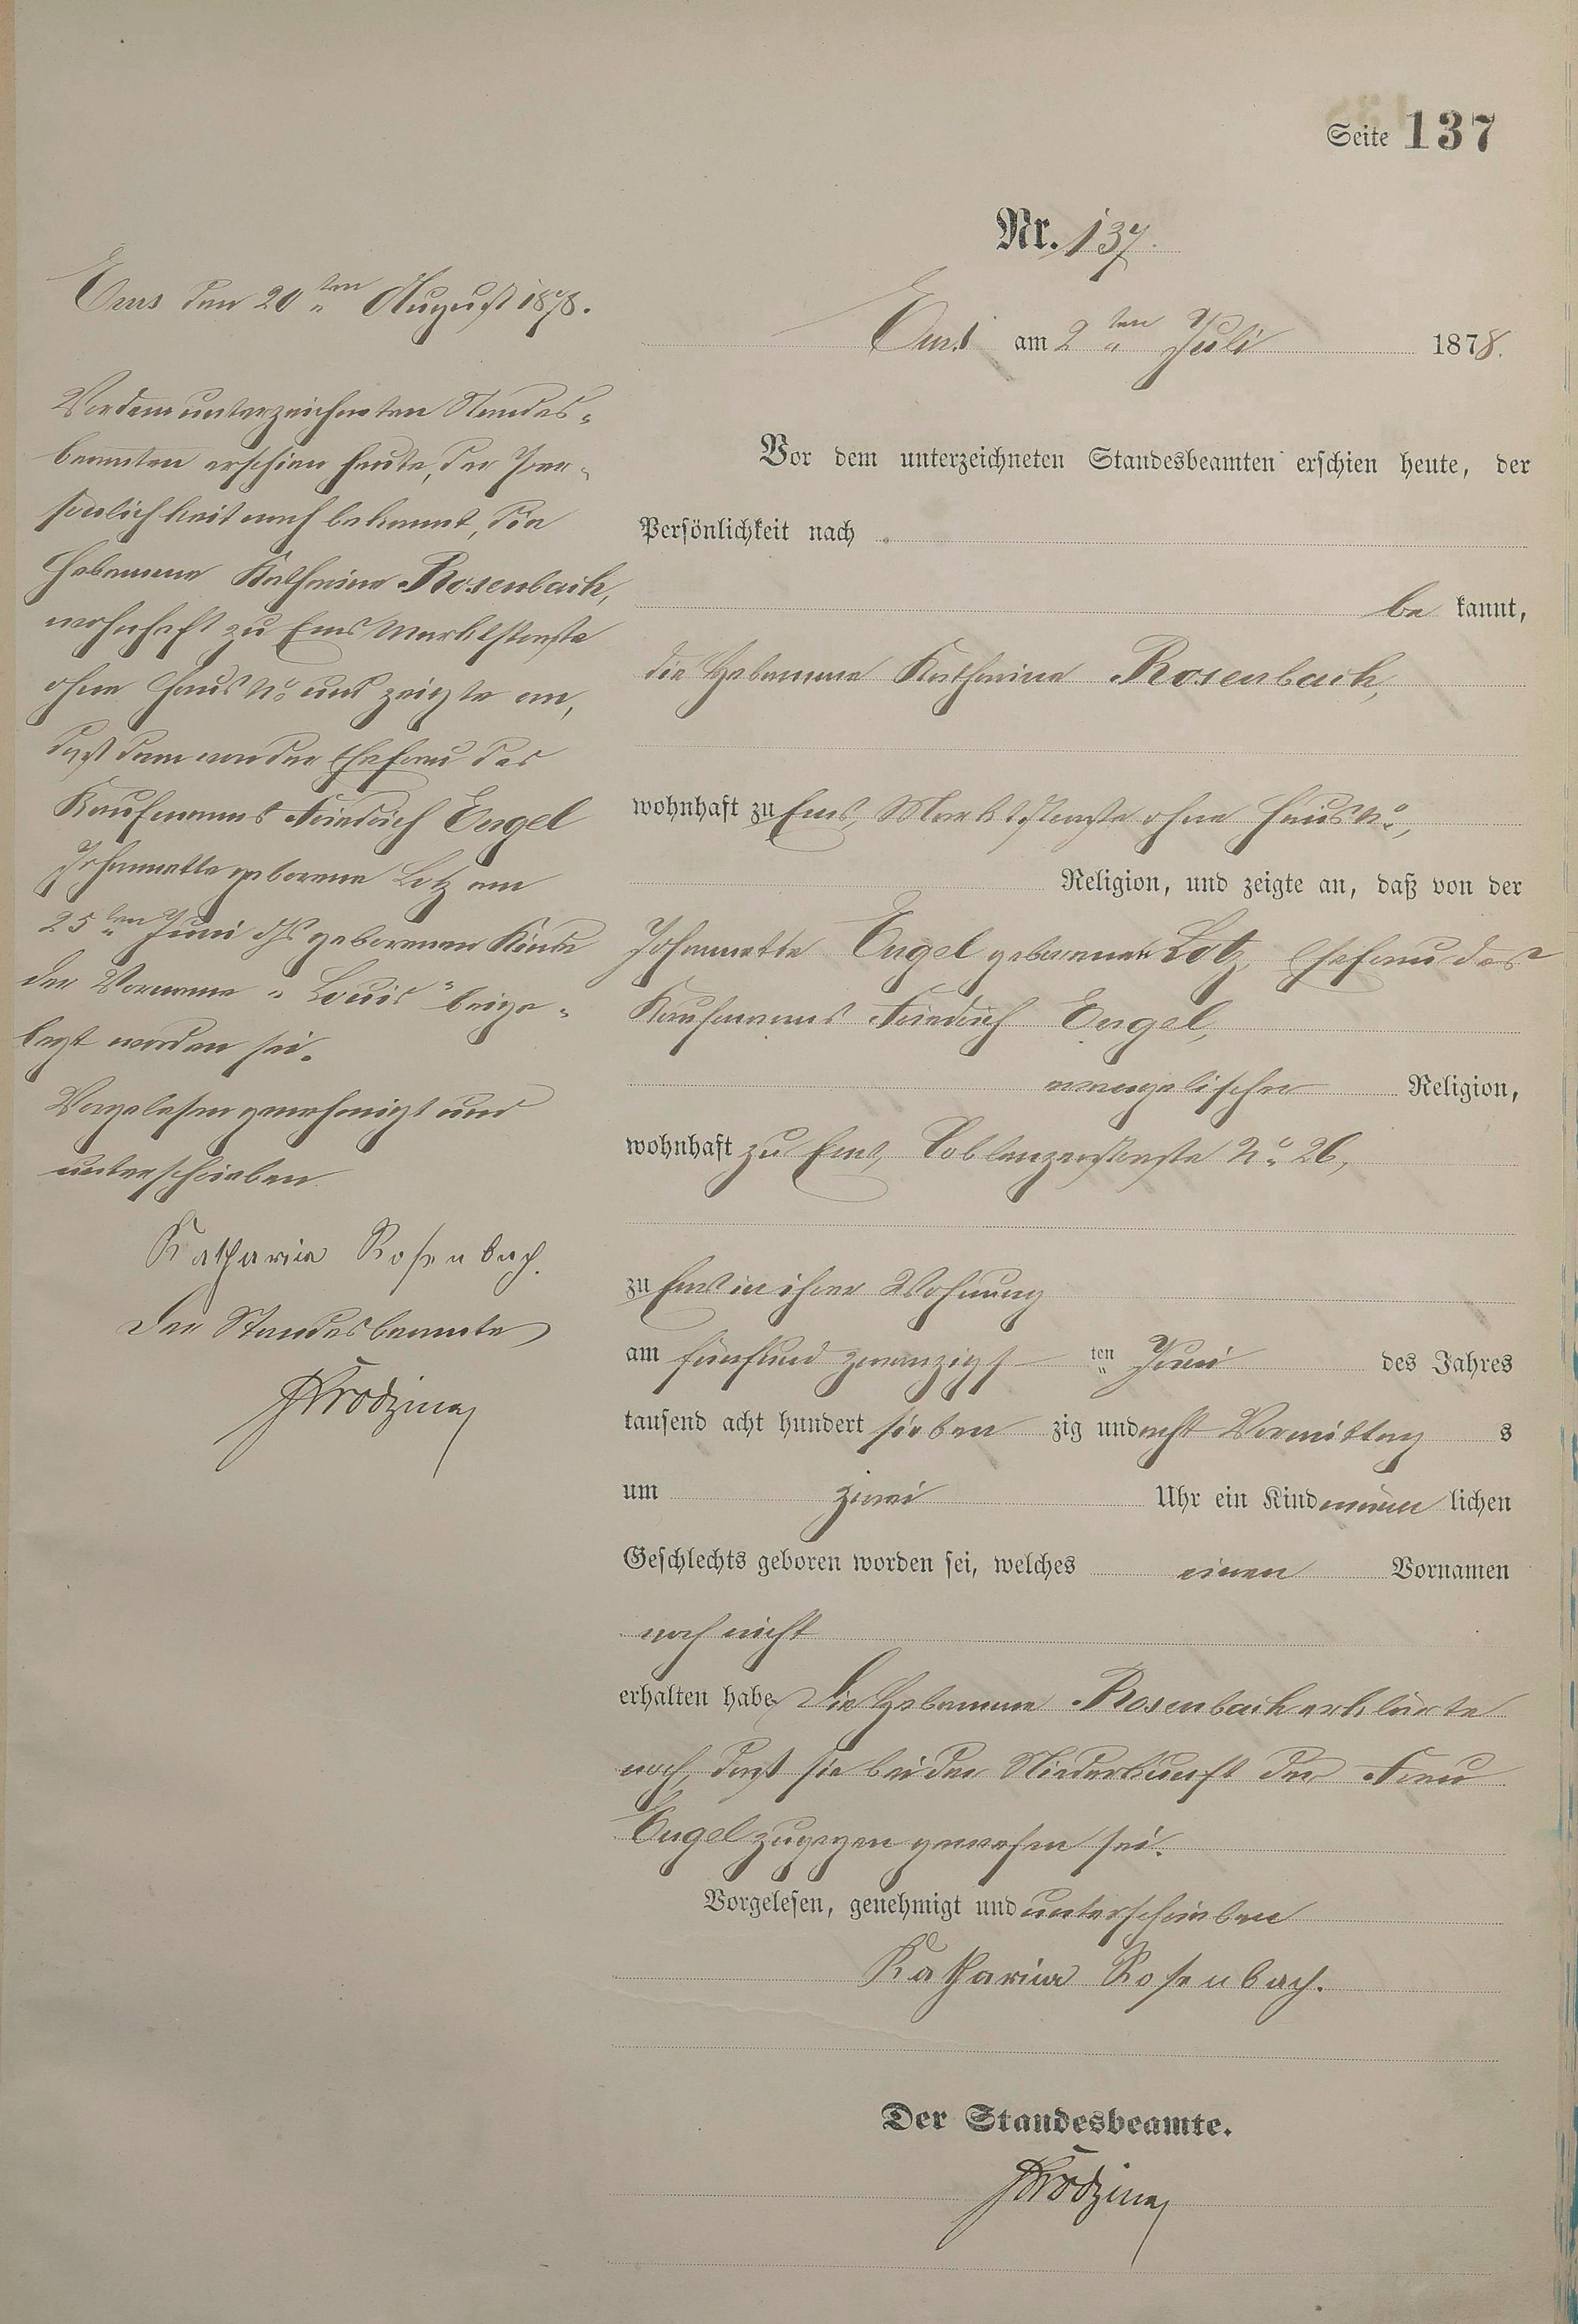 Seite 137
Nr. 137.
Ems am 2ten Juli 1878.
Vor dem unterzeichneten Standesbeamten erschien heute, der
Persönlichkeit nach
be kannt,
die Hebamme Katharina Rosenbach,
wohnhaft zu Ems, Marktstraße ohne Haus No,
Religion, und zeigte an, daß von der
Johannette Engel geborenen Lotz, Ehefrau des
Kaufmanns Friedrich Engel,
evangelischer Religion,
wohnhaft zu Ems, Coblenzerstraße No 26,
zu Ems in ihrer Wohnung
am fünfund zwanzigs ten Juni des Jahres
tausend acht hundert sieben zig und acht Vormittag s
um zwei Uhr ein Kind männ lichen
Geschlechts geboren worden sei, welches einen Vornamen
noch nicht
erhalten habe. Die Hebamme Rosenbach erklärte
noch, daß sie bei der Niederkunft der Frau
Engel zugegen gewesen sei.
Vorgelesen, genehmigt und unterschrieben
Katharina Rosenbach.
Der Standesbeamte.
Ems den 20ten August 1878.
Vor dem unterzeichneten Standes-
beamten erschien heute, der Per-
sönlichkeit nach bekannt, die
Hebamme Katharina Rosenbach,
wohnhaft zu Ems Marktstraße
ohne Haus No und zeigte an,
daß dem von der Ehefrau des
Kaufmanns Friedrich Engel
Johannette geborene Lotz am
25ten Juni d Js geborenen Kinde
der Vorname "Louis" beige-
legt worden sei.
Vorgelesen genehmigt und
unterschrieben
Katharina Rosenbach.
Der Standesbeamte